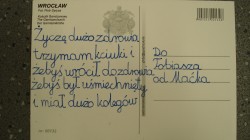 WROCŁAW
Życzę dużo zdrowia
trzymam kciuki i
żebyś wrócił do zdrowia
żebyś był uśmiechnięty
i miał dużo kolegów
Do
Tobiasza
od Maćka